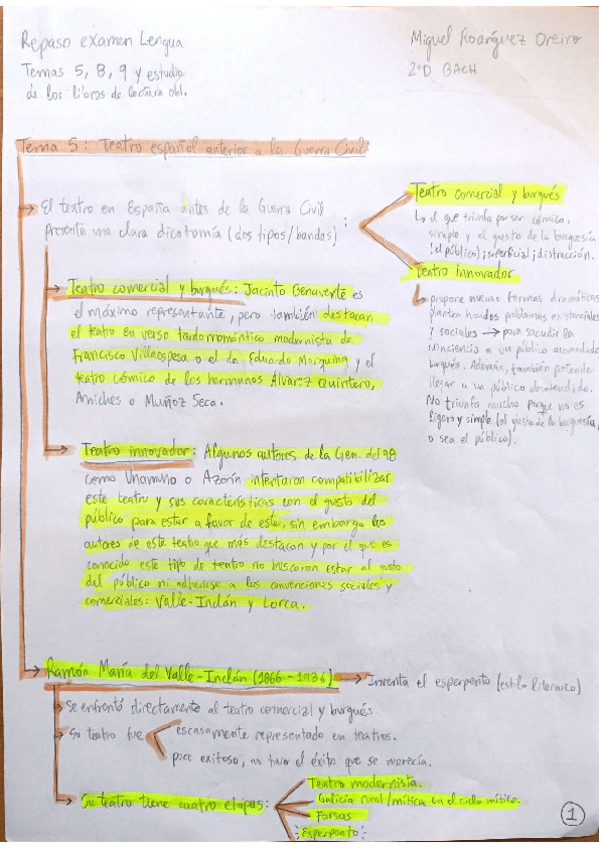 Repaso examen Lengua
Temas 5, 8, 9 y estudio
de los libros de lectura obl.
Miguel Rodríguez Oreiro
2ºD BACH
Tema 5: Teatro español anterior a la Guerra Civil
El teatro en España antes de la Guerra Civil
presenta una clara dicotomía (dos tipos/bandos) :
Teatro comercial y burgués
↳ el que triunfa por ser cómico,
simple y al gusto de la burguesía
(el público); superficial; distracción.
Teatro innovador
↳ propone nuevas formas dramáticas,
plantea hondos problemas existenciales
y sociales → para sacudir la
conciencia a un público acomodado
burgués. Además, también pretende
llegar a un público desatendido.
No triunfa mucho porque no es
ligero y simple (al gusto de la burguesía,
o sea el público).
Teatro comercial y burgués: Jacinto Benavente es
el máximo representante, pero también destacan
el teatro en verso tardorromántico modernista de
Francisco Villaespesa o el de Eduardo Marquina y el
teatro cómico de los hermanos Álvarez Quintero,
Arniches o Muñoz Seca.
Teatro innovador: Algunos autores de la Gen. del 98
como Unamuno o Azorín intentaron compatibilizar
este teatro y sus características con el gusto del
público para estar a favor de este, sin embargo los
autores de este teatro que más destacan y por el que es
conocido este tipo de teatro no buscaron estar al gusto
del público ni adherirse a las convenciones sociales y
comerciales: Valle-Inclán y Lorca.
Ramón María del Valle-Inclán (1866-1936) → Inventa el esperpento (estilo literario)
Se enfrentó directamente al teatro comercial y burgués.
Su teatro fue
escasamente representado en teatros.
poco exitoso, no tuvo el éxito que se merecía.
Su teatro tiene cuatro etapas:
Teatro modernista.
Galicia rural/mítica en el ciclo mítico.
Farsas
Esperpento
1